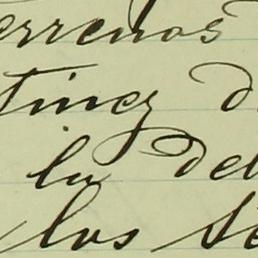 errenos
tinez d
la de
los Se